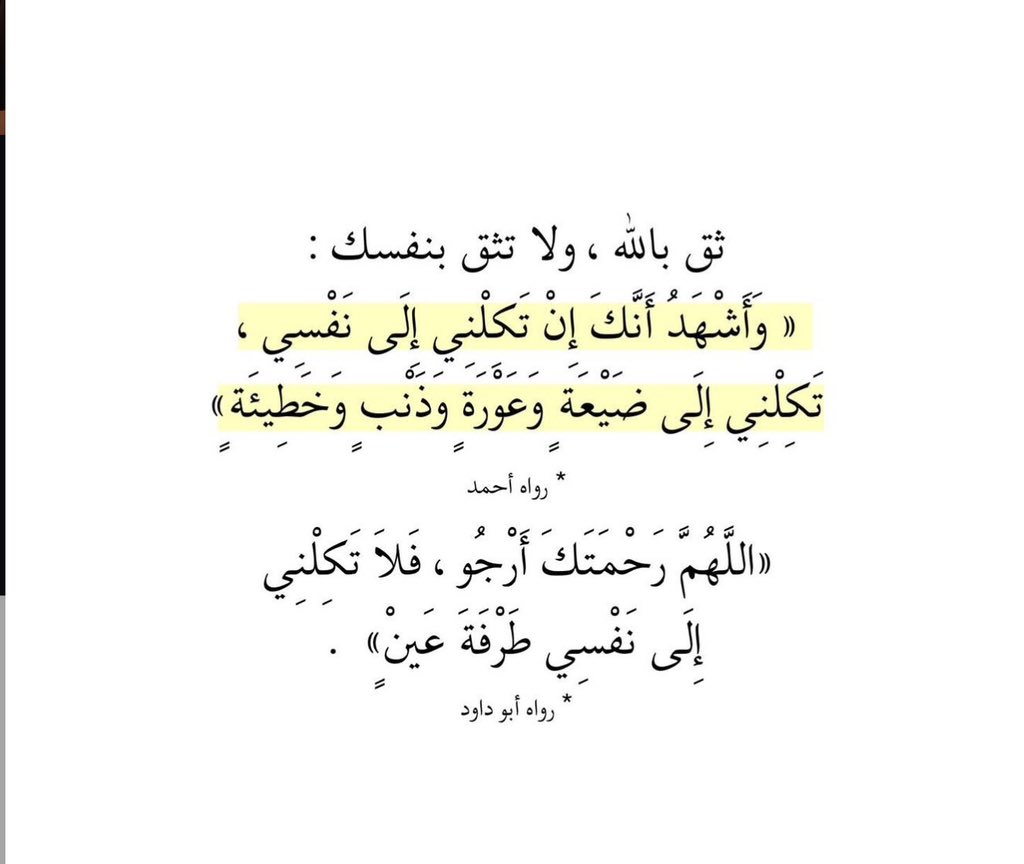 ثق بالله ، ولا تثق بنفسك :
« وَأَشْهَدُ أَنَّكَ إِنْ تَكِلْنِي إِلَى نَفْسِي ،
تَكِلْنِي إِلَى ضَيْعَةٍ وَعَوْرَةٍ وَذَنْبٍ وَخَطِيئَةٍ»
* رواه أحمد
«اللَّهُمَّ رَحْمَتَكَ أَرْجُو ، فَلاَ تَكِلْنِي
إِلَى نَفْسِي طَرْفَةَ عَيْنٍ» .
* رواه أبو داود